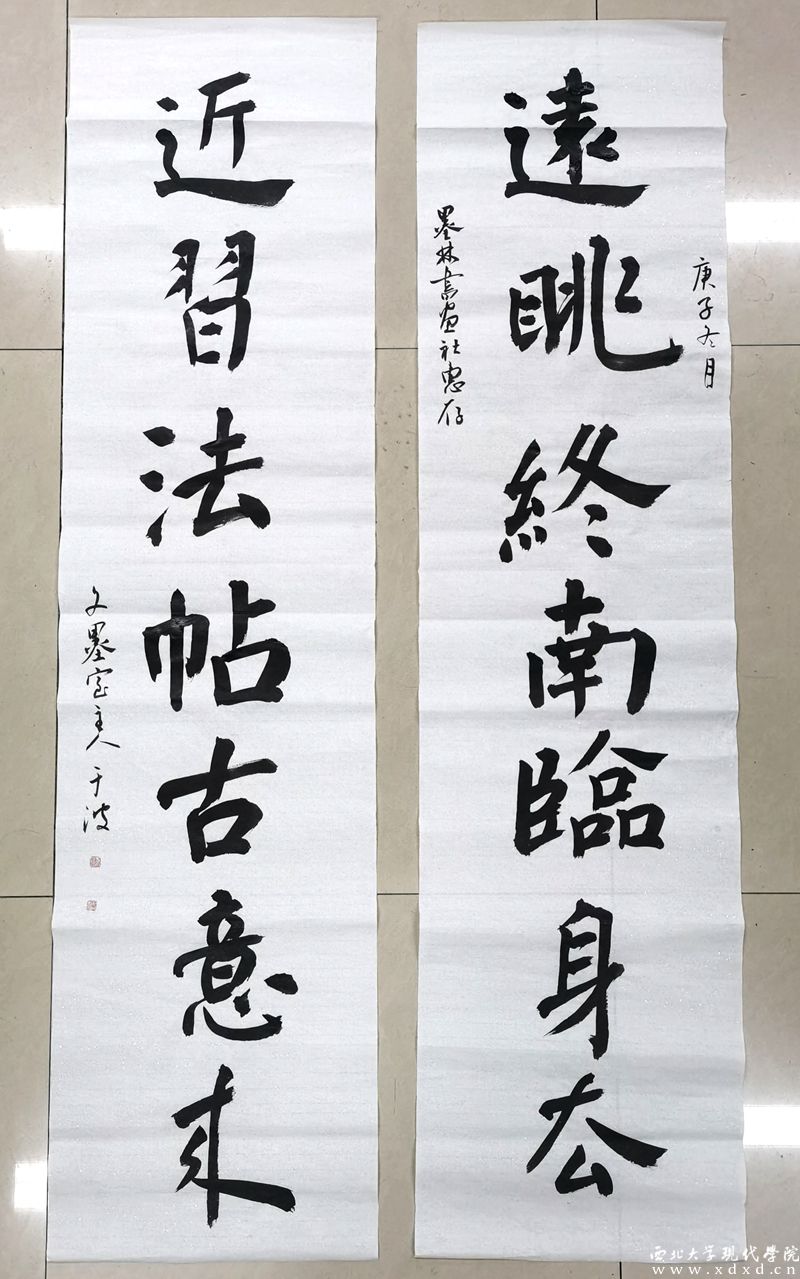 庚子冬月
遠眺終南臨身厺
墨林書畫社惠存
近習法帖古意来
文墨室主人 于波
西北大学现代学院
www.xdxd.cn